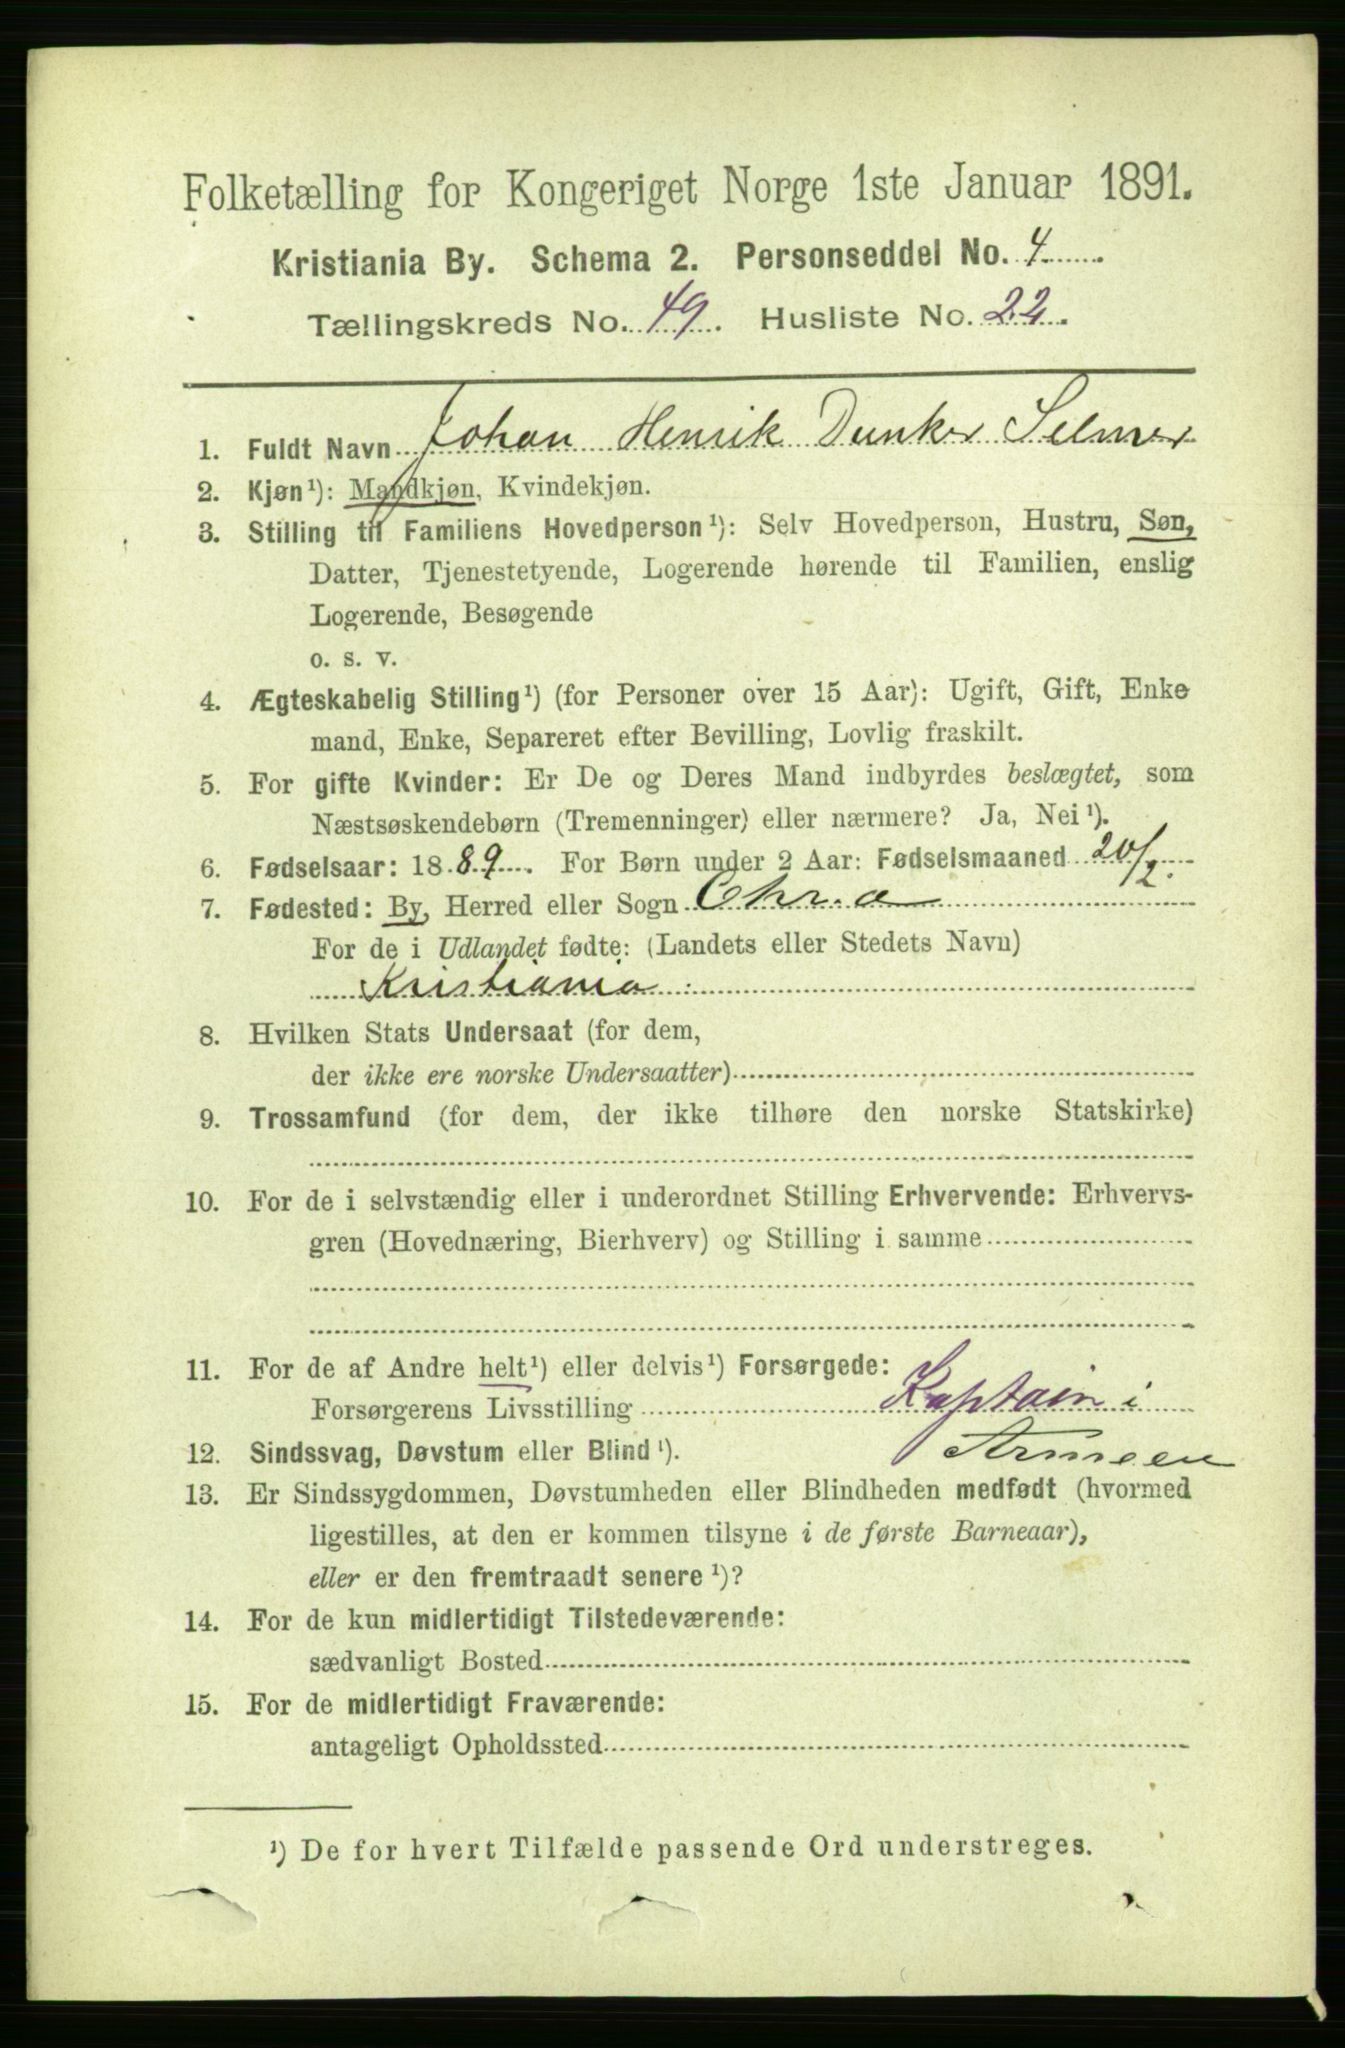 Folketælling for Kongeriget Norge 1ste Januar 1891.
Kristiania By. Schema 2. Personseddel No. 4
Tællingskreds No. 49. Husliste No. 22.
1. Fuldt Navn Johan Henrik Dunker Selmer
2. Kjøn¹): Mandkjøn, Kvindekjøn.
3. Stilling til Familiens Hovedperson¹): Selv Hovedperson, Hustru, Søn,
Datter, Tjenestetyende, Logerende hørende til Familien, enslig
Logerende, Besøgende
o. s. v.
4. Ægteskabelig Stilling¹) (for Personer over 15 Aar): Ugift, Gift, Enke
mand, Enke, Separeret efter Bevilling, Lovlig fraskilt.
5. For gifte Kvinder: Er De og Deres Mand indbyrdes beslægtet, som
Næstsøskendebørn (Tremenninger) eller nærmere? Ja, Nei¹).
6. Fødselsaar: 1889. For Børn under 2 Aar: Fødselsmaaned 20/2.
7. Fødested: By, Herred eller Sogn Chr.a
For de i Udlandet fødte: (Landets eller Stedets Navn)
Kristiania
8. Hvilken Stats Undersaat (for dem,
der ikke ere norske Undersaatter)
9. Trossamfund (for dem, der ikke tilhøre den norske Statskirke)
10. For de i selvstændig eller i underordnet Stilling Erhvervende: Erhvervs-
gren (Hovednæring, Bierhverv) og Stilling i samme
11. For de af Andre helt¹) eller delvis¹) Forsørgede:
Forsørgerens Livsstilling Kaptain i
Armeen
12. Sindssvag, Døvstum eller Blind¹).
13. Er Sindssygdommen, Døvstumheden eller Blindheden medfødt (hvormed
ligestilles, at den er kommen tilsyne i de første Barneaar),
eller er den fremtraadt senere¹)?
14. For de kun midlertidigt Tilstedeværende:
sædvanligt Bosted
15. For de midlertidigt Fraværende:
antageligt Opholdssted
¹) De for hvert Tilfælde passende Ord understreges.